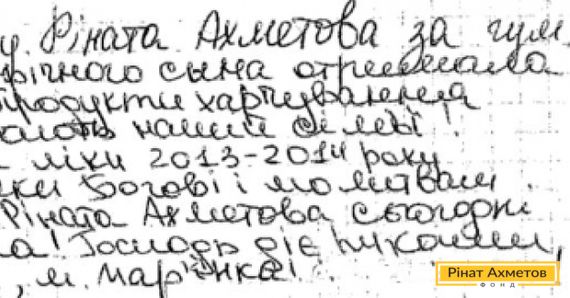 у. Ріната Ахметова за гум.
річного сына отримала
продукти харчування
ають нашій сім'ї!
ліки 2013-2014 року
ки Богові і молитвам.
Ріната Ахметова сьогодні
а! Господь діє руками
, м. Мар'їнка!
Рінат Ахметов
ФОНД